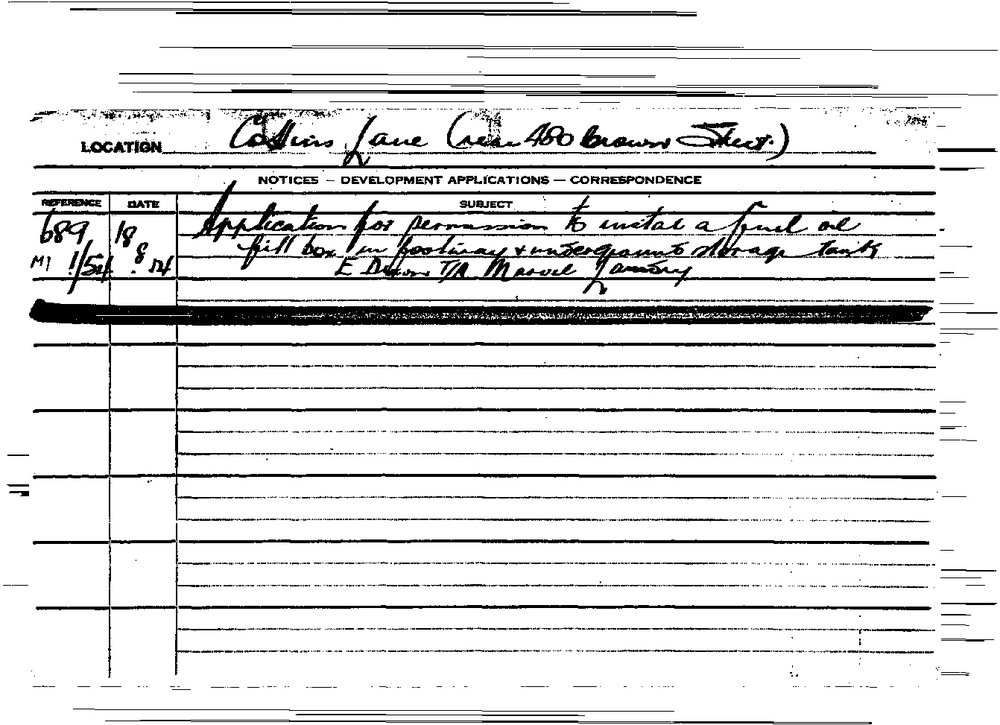 LOCATION Collins Lane (rear 480 Crown Street.)
NOTICES — DEVELOPMENT APPLICATIONS — CORRESPONDENCE
REFERENCE DATE SUBJECT
689 18 Application for permission to instal a fuel oil
8 fill box in footway & underground storage tank
M1 1/54 . 54 E Dixon T/A Marvel Laundry